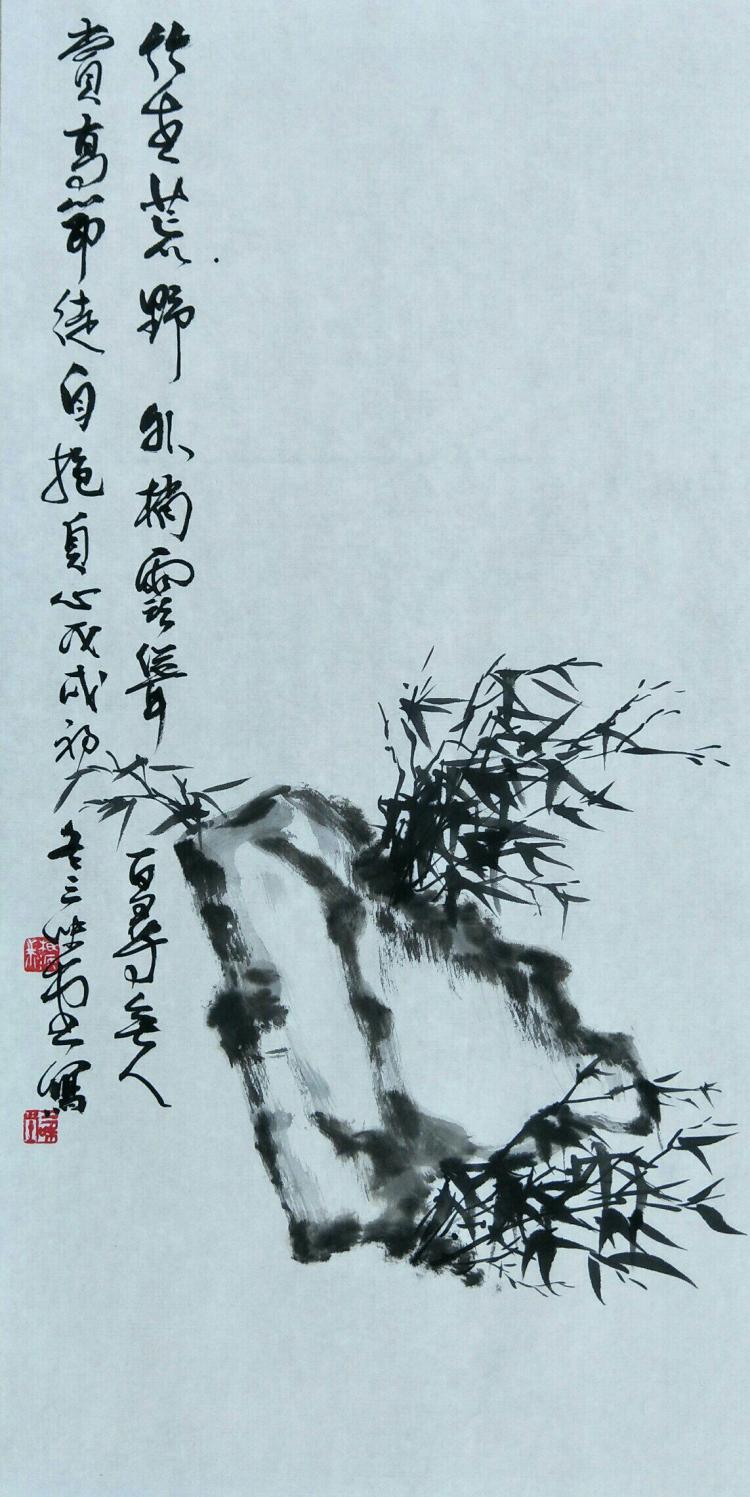 竹生荒野外梢雲聳百尋無人
賞高節徒自抱貞心戊戌初三寫